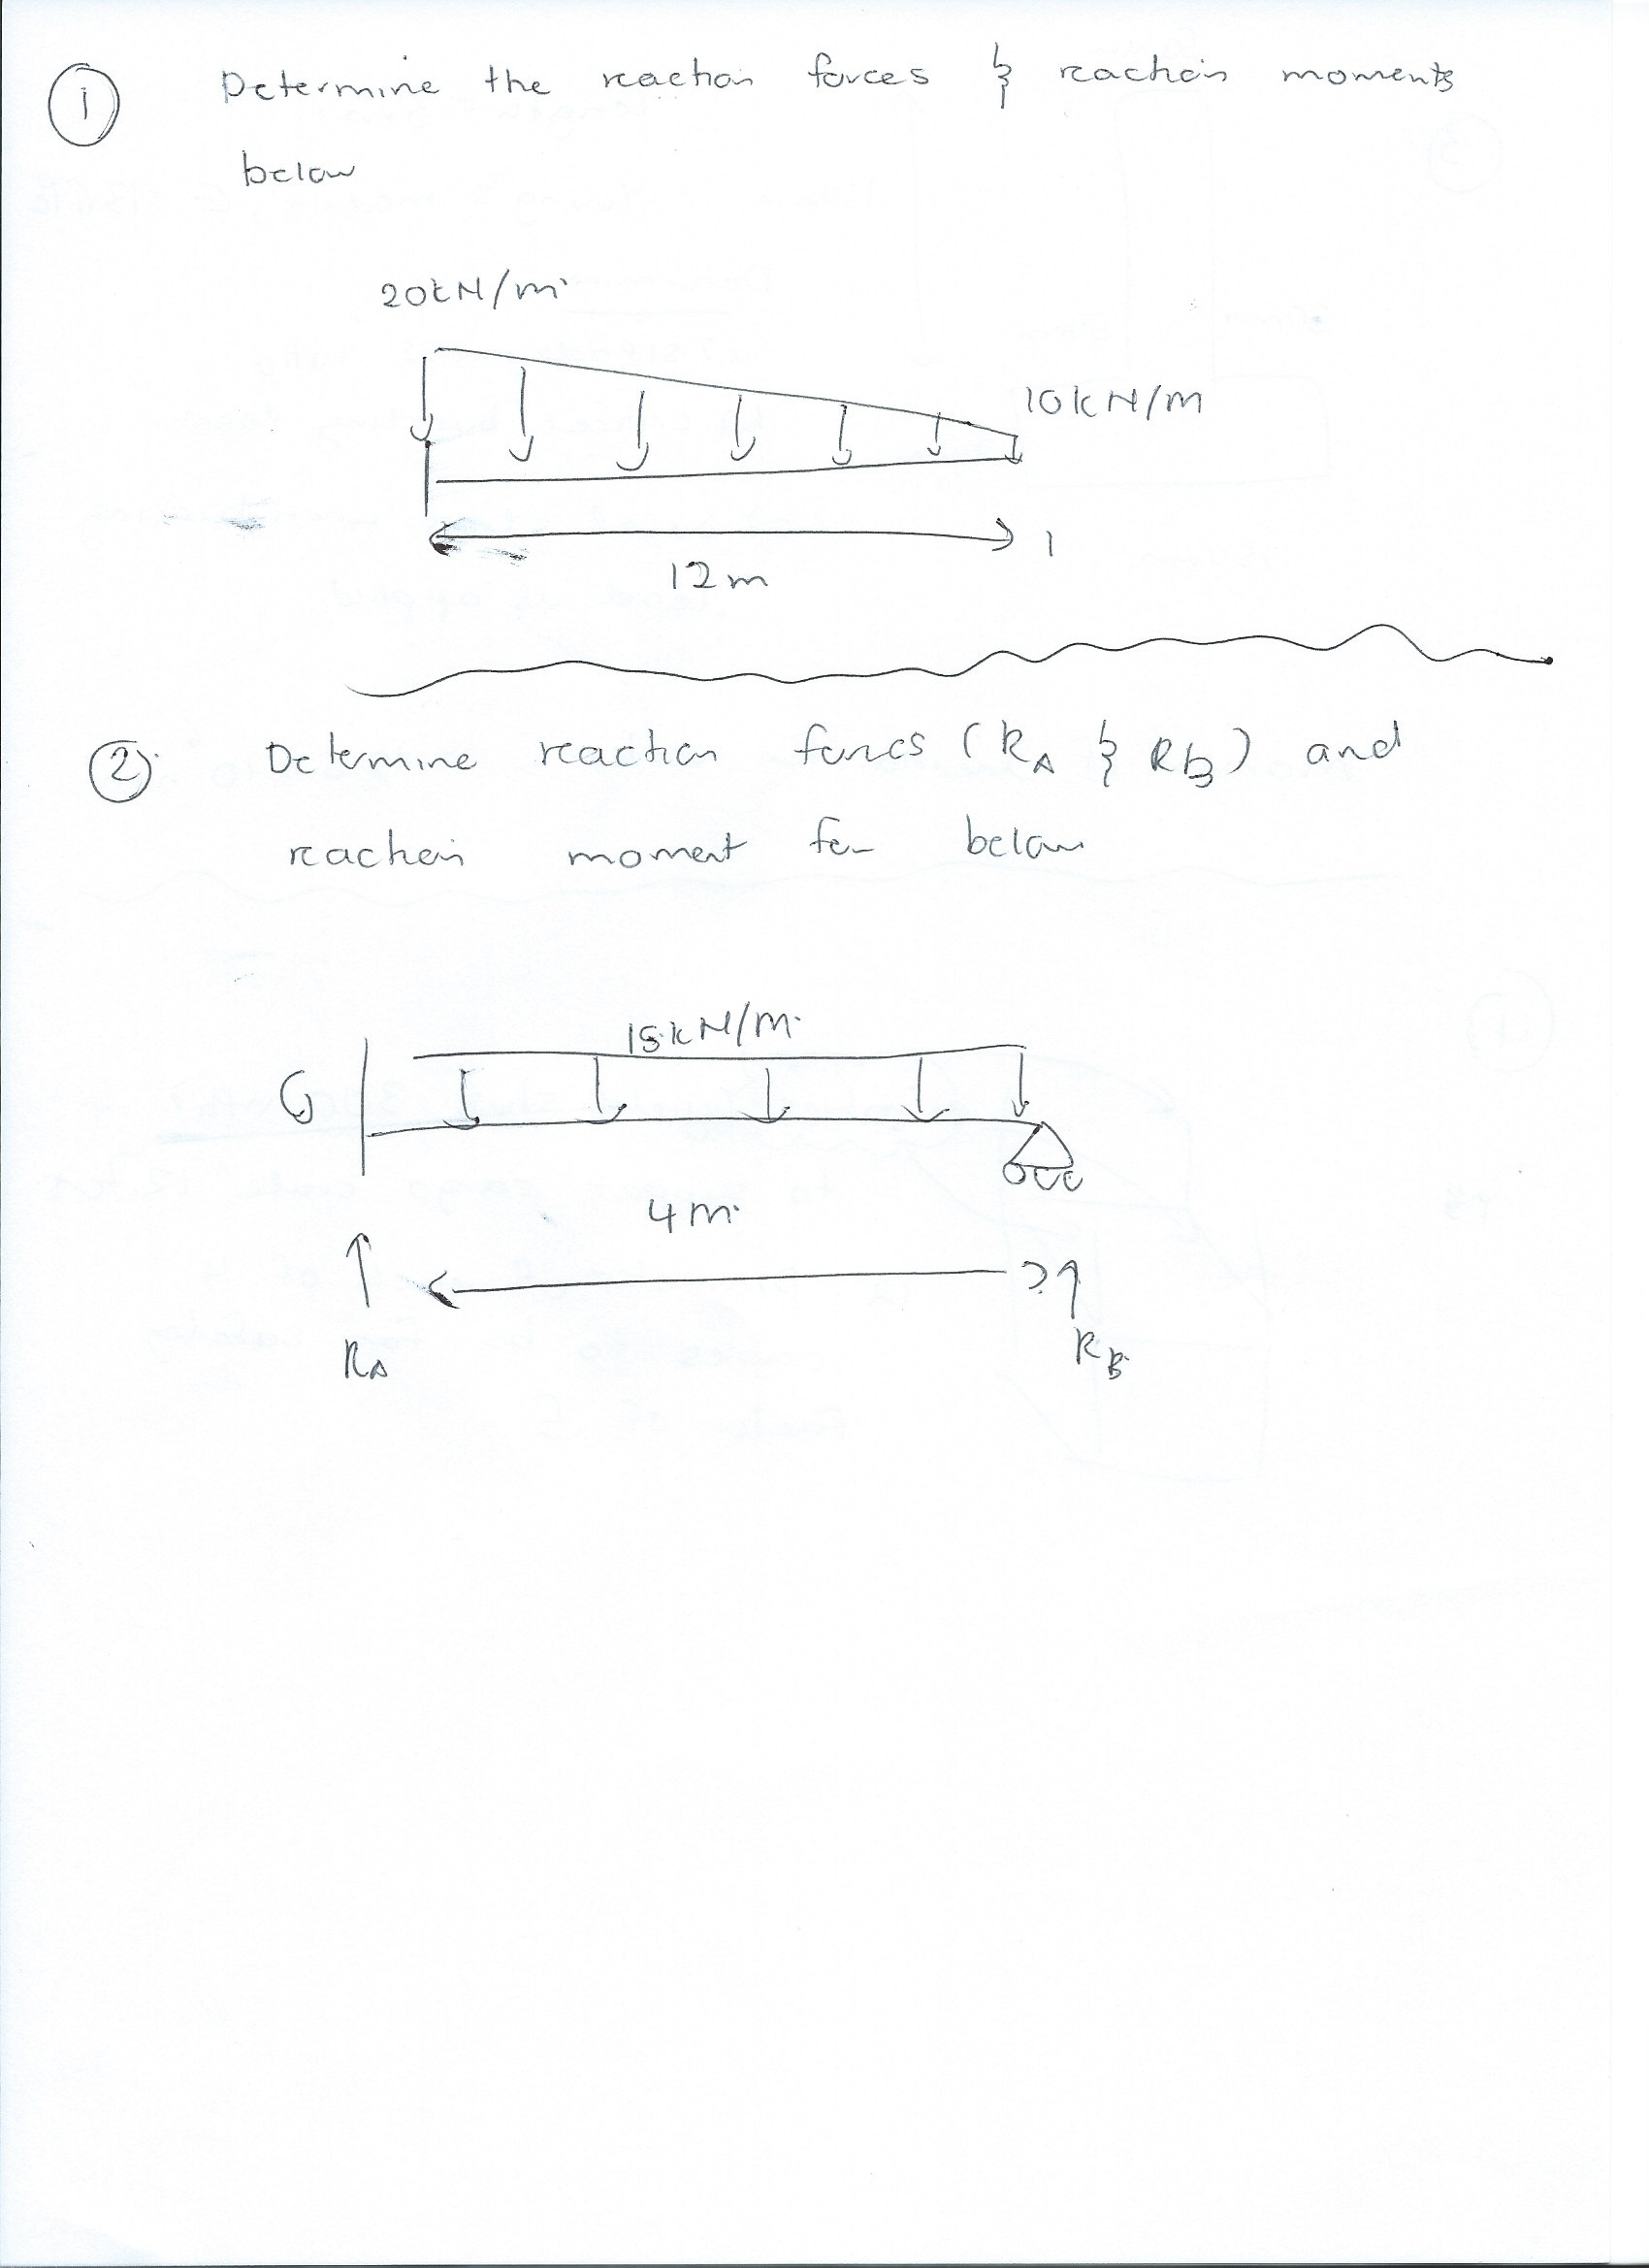 1 Determine the reaction forces & reaction moments
below
20kN/m
10kN/m
12m
2 Determine reaction forces (RA & RB) and
reaction moment for below
15kN/m
4m
RA
RB